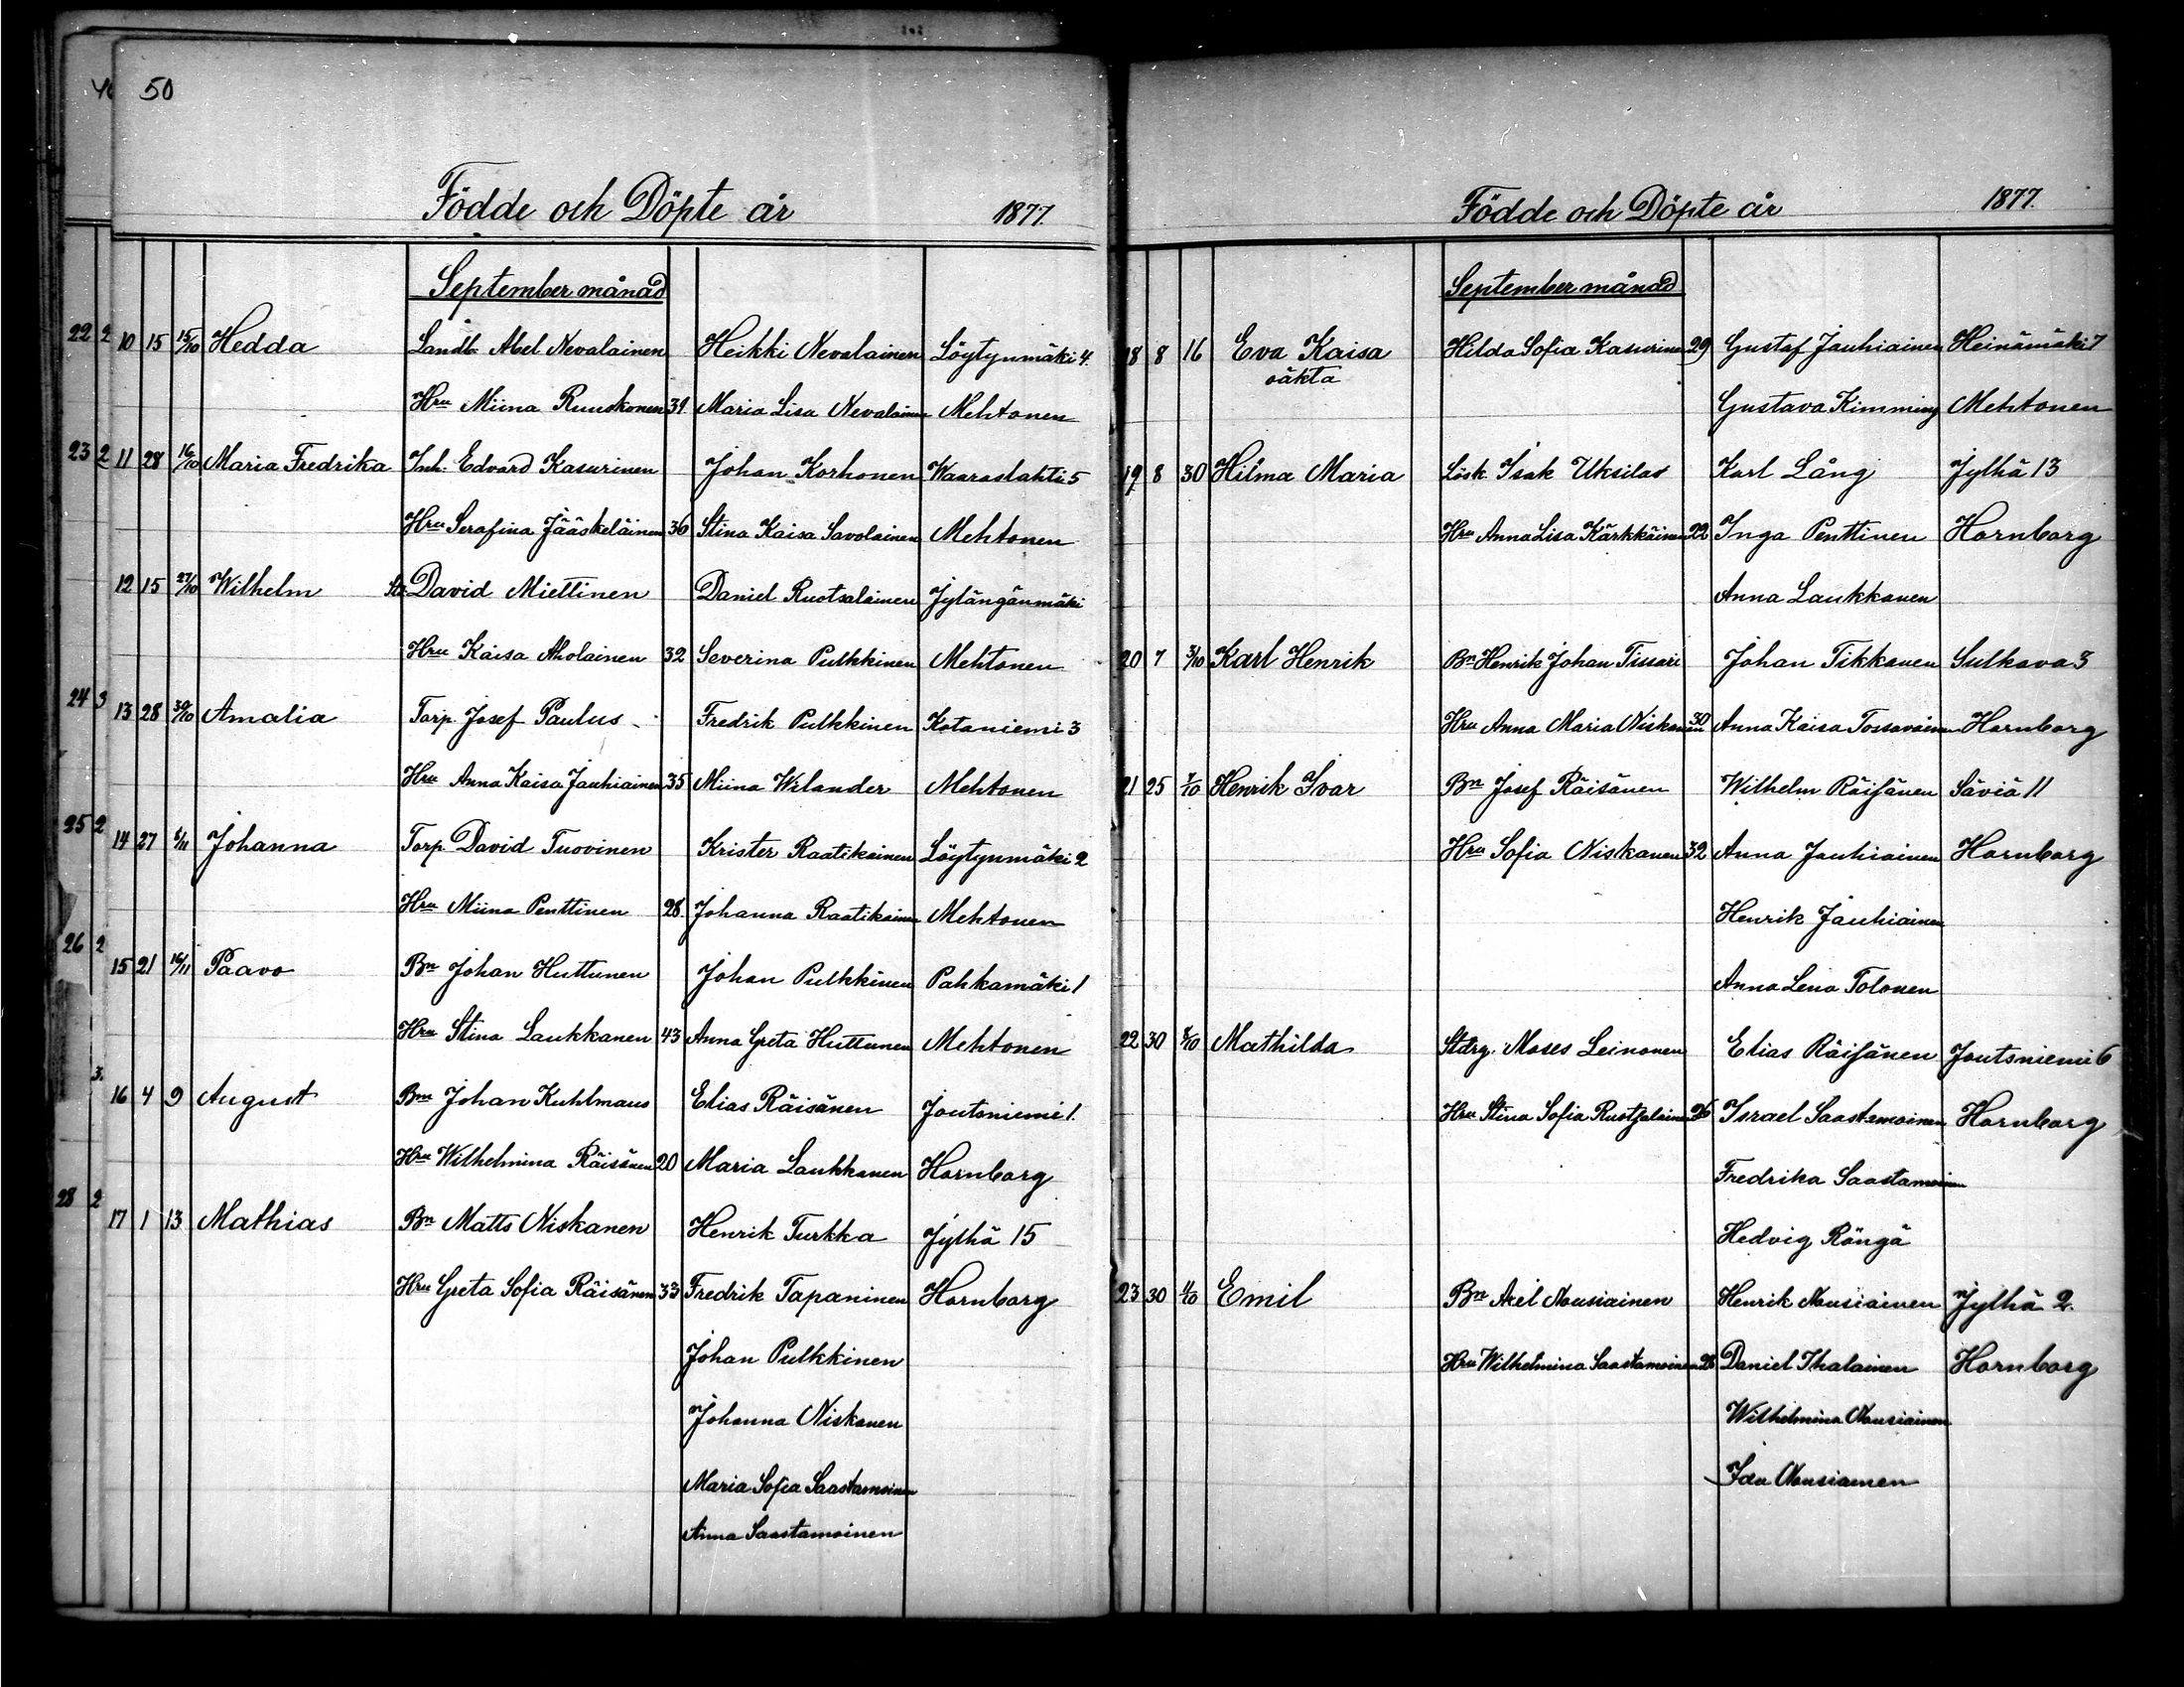 50
Födde och Döpte år 1877.
September månad
10 15 15/10 Hedda Landb. Abel Nevalainen Heikki Nevalainen Löytynmäki 4.
Hru Miina Ruuskonen 31 Maria Lisa Nevalainen Mehtonen
11 28 16/10 Maria Fredrika Inh. Edvard Kasurinen Johan Korhonen Waaraslahti 5
Hru Serafina Jääskeläinen 36 Stina Kaisa Savolainen Mehtonen
12 15 27/10 Wilhelm David Miettinen Daniel Ruotsalainen Jylängänmäki
Hru Kaisa Aholainen 32 Severina Pulkkinen Mehtonen
13 28 30/10 Amalia Torp. Josef Paulus Fredrik Pulkkinen Kotaniemi 3
Hru Anna Kaisa Jauhiainen 35 Miina Wilander Mehtonen
14 27 Johanna Torp. David Tuovinen Krister Raatikainen Löytynmäki 2
Hru Miina Penttinen 28. Johanna Raatikainen Mehtonen
15 21 16/11 Paavo Bn Johan Huttunen Johan Pulkkinen Pahkamäki 1
Hru Stina Laukkanen 43 Anna Greta Huttunen Mehtonen
16 4 9 August Bn Johan Kuhlmaus Elias Räisänen Joutsniemi 1.
Hru Wilhelmina Räisänen 20 Maria Laukkanen Hornborg
17 1 13 Mathias Bn Matts Niskanen Henrik Turkka Jylhä 15
Hru Greta Sofia Räisänen 33 Fredrik Tapaninen Hornborg
Johan Pulkkinen
Johanna Niskanen
Maria Sofia Saastamoinen
Anna Saastamoinen
22 2
23 2
24 3
25 2
26 2
3.
28 2
Födde och Döpte år 1877.
September månad
18 8 16 Eva Kaisa Hilda Sofia Kasurinen 29 Gustaf Jauhiainen Heinämäki 7
oäkta
Gustava Kimming Mehtonen
19 8 30 Hilma Maria Lösk. Isak Uksilas Karl Lång Jylhä 13
Hru Anna Lisa Kärkkäinen 22 Inga Penttinen Hornborg
Anna Laukkanen
20 7 3/10 Karl Henrik Bn Henrik Johan Tissari Johan Tikkanen Sulkava 3
Hru Anna Maria Niskanen 30 Anna Kaisa Tossavainen Hornborg
21 25 Henrik Ivar Bn Josef Räisänen Wilhelm Räisänen Säviä 11
Hru Sofia Niskanen 32 Anna Jauhiainen Hornborg
Henrik Jauhiainen
Anna Lena Tolonen
22 30 Mathilda Stdrg. Moses Leinonen Elias Räisänen Joutsniemi 6
Hru Stina Sofia Ruotsalainen 26 Israel Saastamoinen Hornborg
Fredrika Saastamoinen
Hedvig Rönqä
23 30 Emil Bn Axel Nousiainen Henrik Nousiainen Jylhä 2.
Hru Wilhelmina Saastamoinen 28 Daniel Ihalainen Hornborg
Wilhelmina Nousiainen
Ida Nousiainen